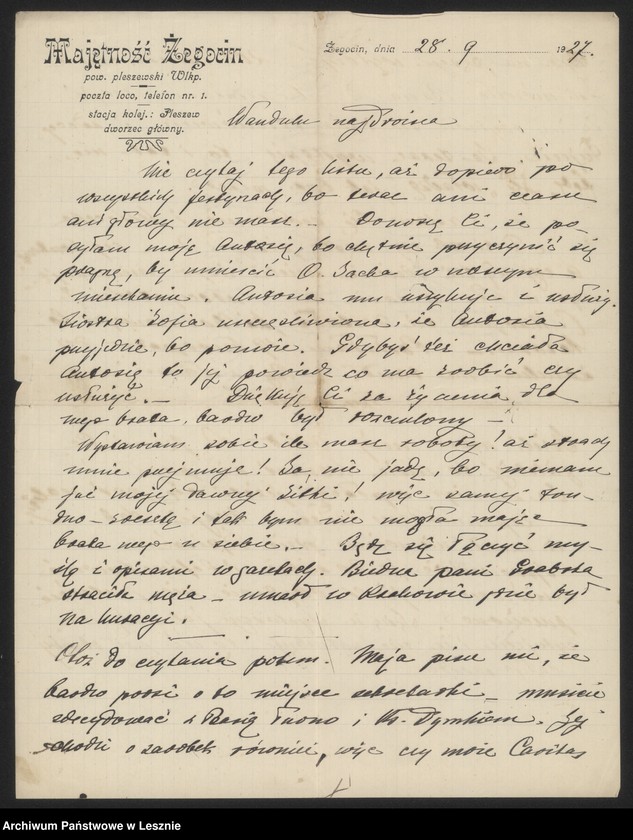 Majętność Żegocin
pow. pleszewski Wlkp.
poczta loco, telefon nr. 1.
stacja kolej.: Pleszew
dworzec główny.
Żegocin, dnia 28. 9 1927.
Wandulu najdroższa
Nie czytaj tego listu, aż dopiero po
wszystkich, bo teraz ani czasu
ani głowy nie masz. – Donoszę Ci, że po-
syłam moją Antosię, bo chętnie przyczynić się
pragnę, by umieścić O. Sacka w naszym
mieszkaniu. Antosia mu i usłuży.
Siostra Zofia uszczęśliwiona, że Antosia
przyjedzie, bo pomoże. Gdybyś też chciała
Antosię to jej powiedz co ma zrobić czy
usłużyć. – Dziękuję Ci za życzenia dla
mego brata, bardzo był rozczulony –
Wystawiam sobie ile masz roboty! aż strach
mnie przejmuje! Ja nie jadę, bo niemam
już mojej dawnej siłki! więc samej tru-
dno – zresztą i tak bym nie mogła mając
brata mego u siebie. – Będę się łączyć my-
ślą i opisami w gazetach. Biedna pani
straciła męża – umarł w Krakowie gdzie był
na kuracji.
Otóż do czytania potem. Maja pisze mi, że
bardzo prosi o to miejsce sekretarki – musicie
zdecydować z i Ks. Dymkiem. Jej
chodzi o zarobek również, więc czy może Caritas
Archiwum Państwowe w Lesznie